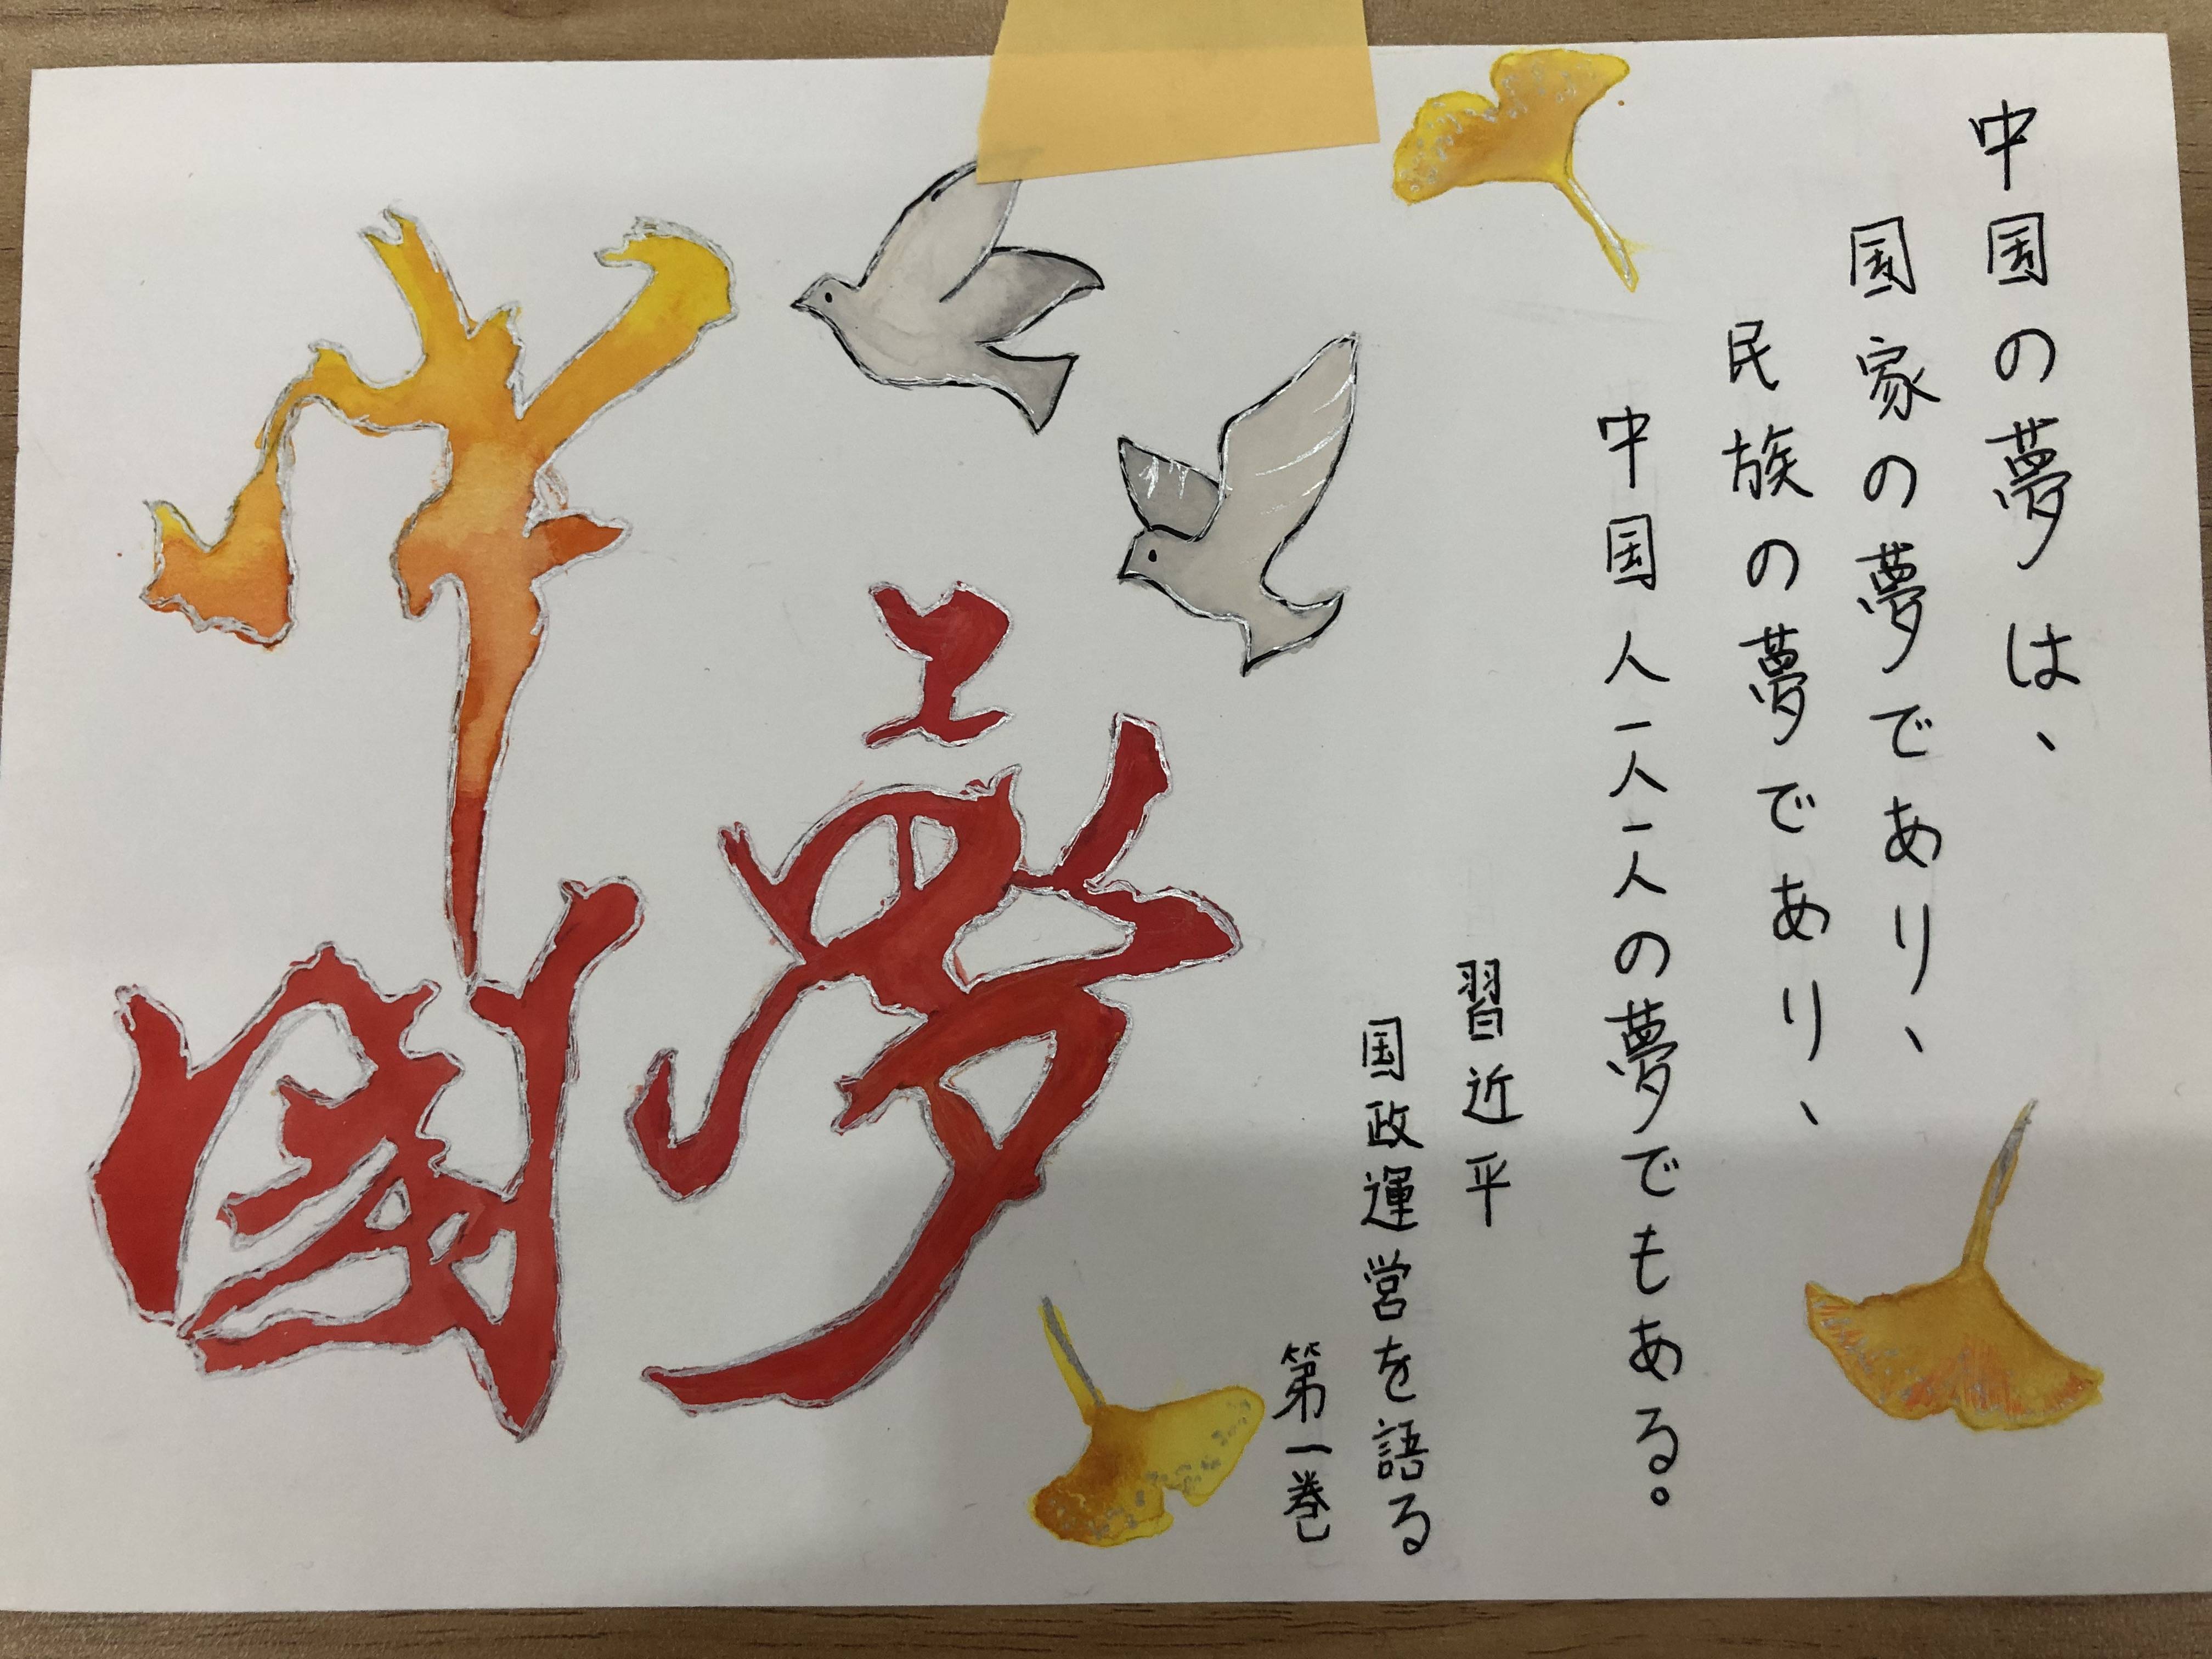 中国の夢は、
国家の夢であり、
民族の夢であり、
中国人一人一人の夢でもある。
習近平
国政運営を語る
第一巻
中國夢